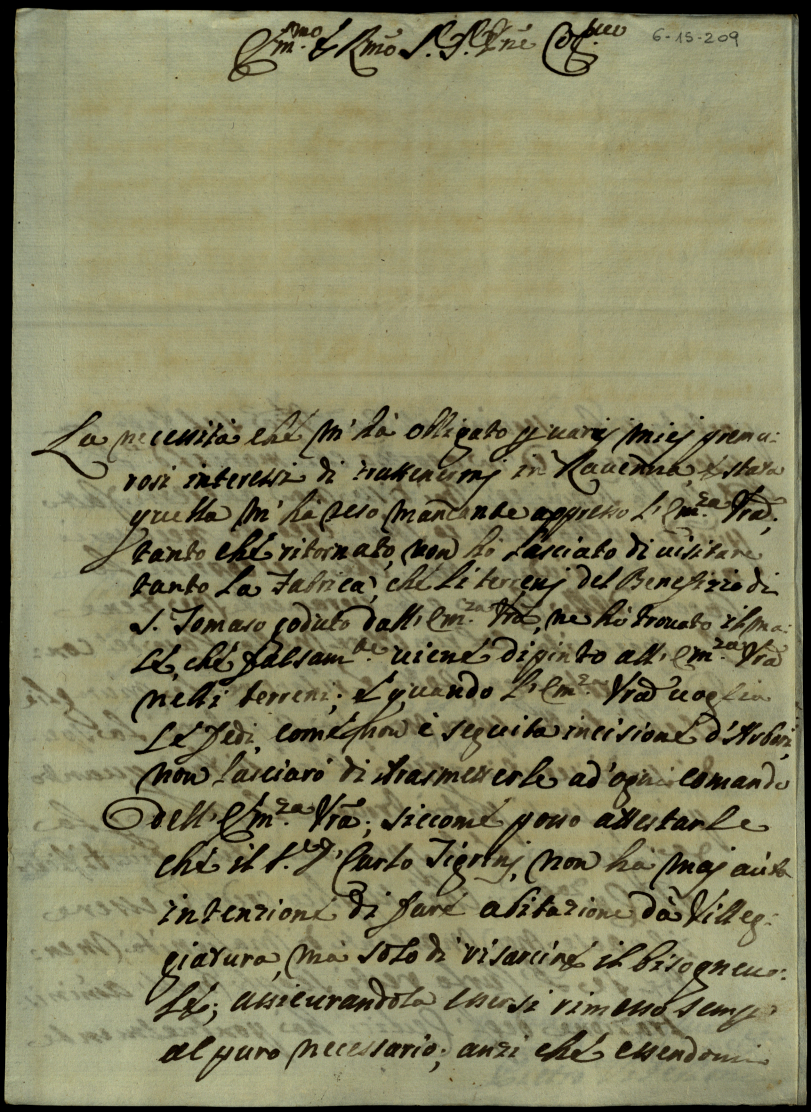 Em.mo e Rmo S.r S.r Pñe Col.mo
6-15-209
La necessità che m'hà obligato p varij miei premu:
rosi interessi di trattenermj in Ravenna, è stata
quella m'hà reso mancante appresso l'Em.za Vrã;
tanto che ritornato, non hò lasciato di visitare
tanto la Fabrica, che li terrenj del Benefizio di
S. Tomaso goduto dall'Em.za Vrã, ne hò trovato il ma:
le, che falsam.te viene dipinto all'Em.za Vrã
nelli terreni; e quando l'Em.za Vrã voglia
le fedi, come non è seguita incisione d'Arbori,
non lasciarò di trasmetterle ad'ogni comando
dell'Em.za Vrã; siccome posso attestarle
che il S.r D. Carlo Tigrinj, non hà maj auta
intenzione di fare abitazione dà Villeg:
giatura, mà solo di risarcire il bisogneuo:
le; assicurandola essersi rimesso sempre
al puro necessario; anzi che essendomi